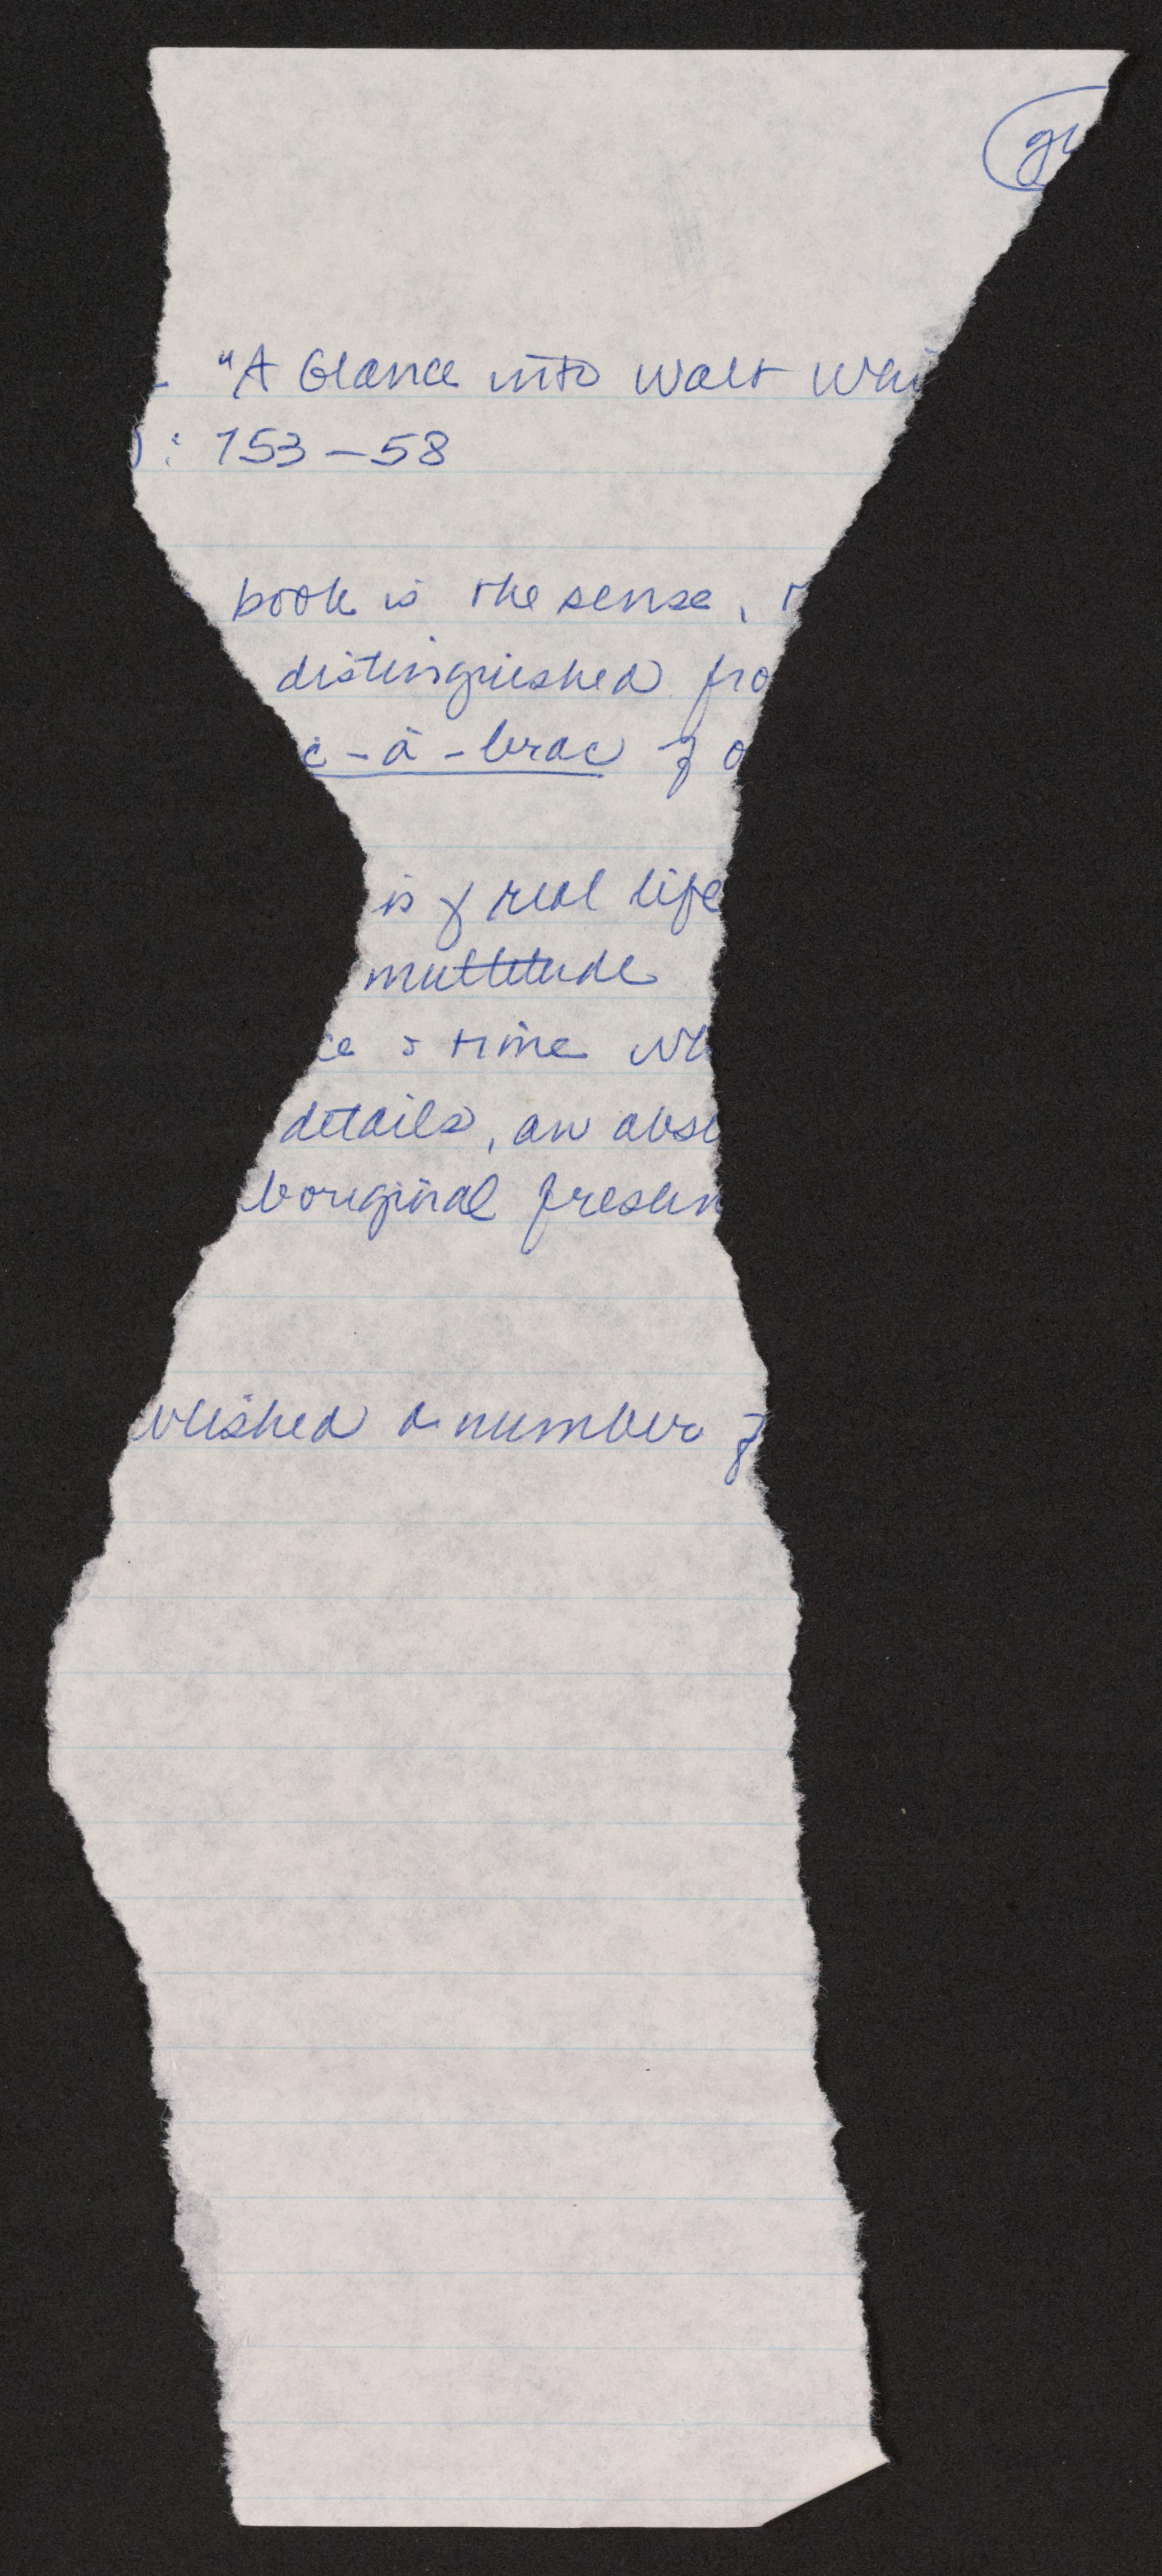 "A Glance into Walt Whi
: 153-58
book is the sense,
distinguished fro
c-à-brac of o
is of real life
multitude
ce & time wh
details, an abso
boriginal freshn
blished a number of